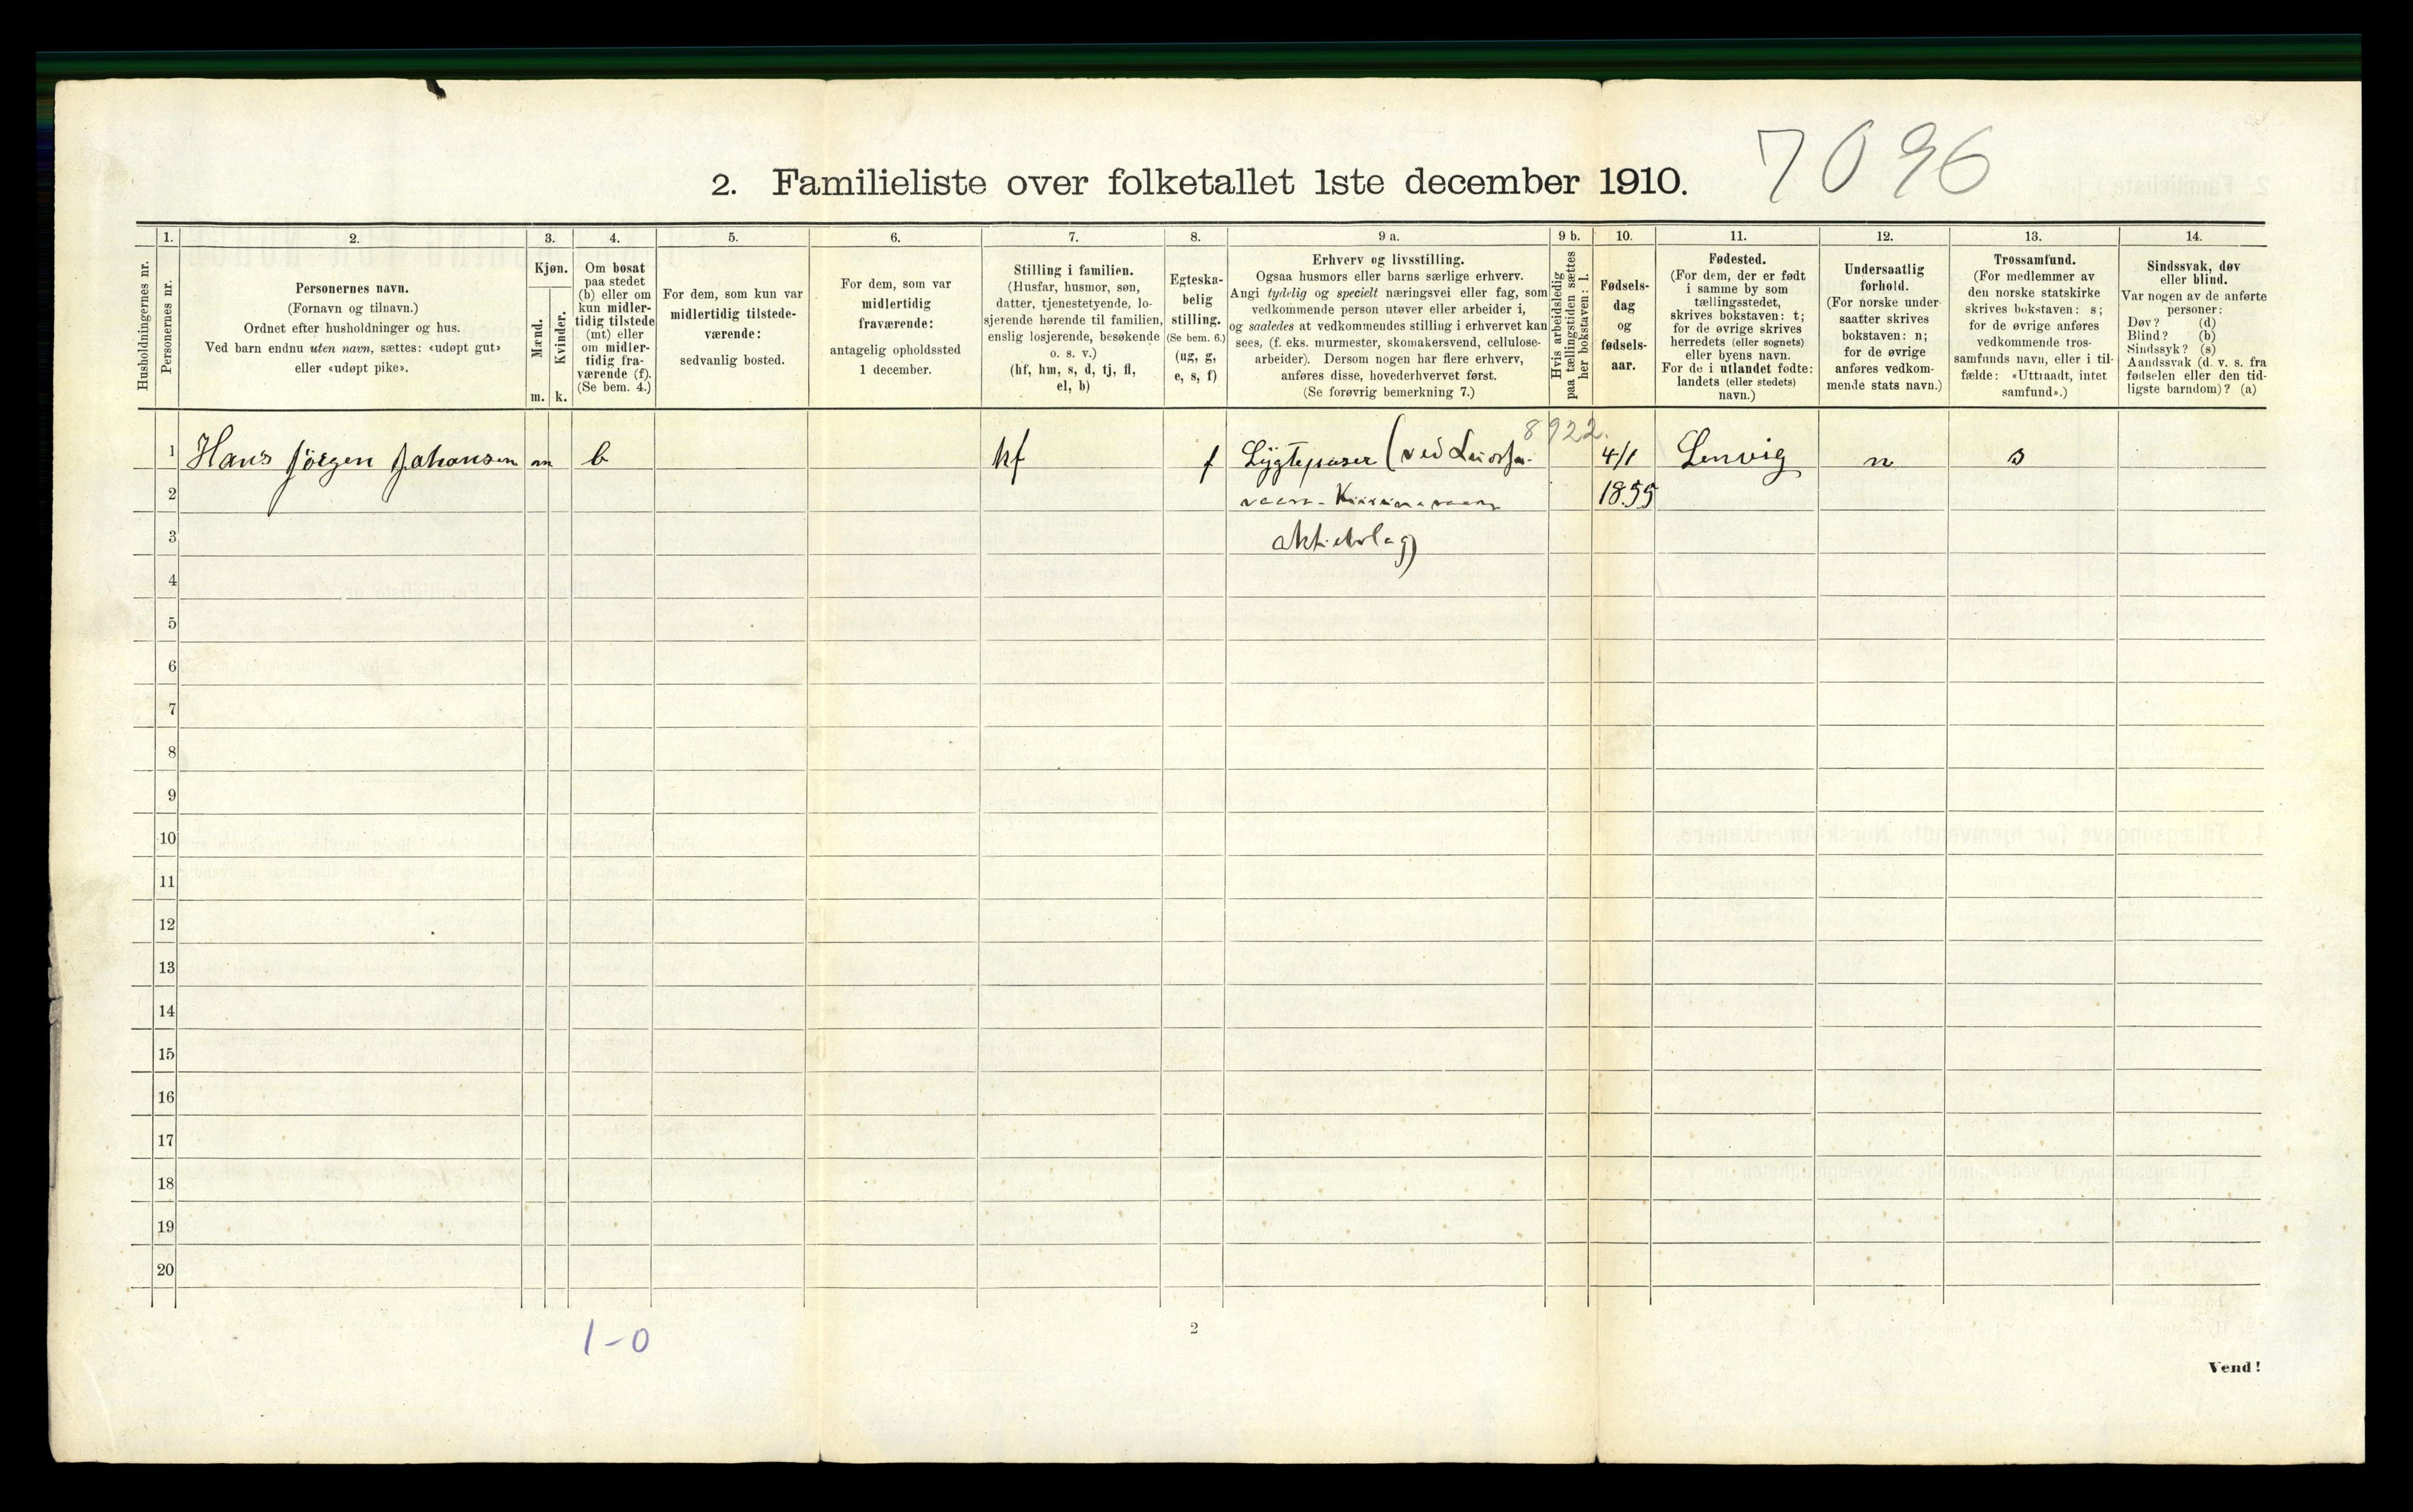 7096
2. Familieliste over folketallet 1ste december 1910.
Husholdningernes nr.
1.
Personernes nr.
2.
Personernes navn.
(Fornavn og tilnavn.)
Ordnet efter husholdninger og hus.
Ved barn endnu uten navn, sættes: «udøpt gut»
eller «udøpt pike».
3.
Kjøn.
Mænd.
Kvinder.
m.
k.
4.
Om bosat
paa stedet
(b) eller om
kun midler-
tidig tilstede
(mt) eller
om midler-
tidig fra-
værende (f).
(Se bem. 4.)
5.
For dem, som kun var
midlertidig tilstede-
værende:
sedvanlig bosted.
6.
For dem, som var
midlertidig
fraværende:
antagelig opholdssted
1 december.
7.
Stilling i familien.
(Husfar, husmor, søn,
datter, tjenestetyende, lo-
sjerende hørende til familien,
enslig losjerende, besøkende
o. s. v.)
(hf, hm, s, d, tj, fl,
el, b)
8.
Egteska-
belig
stilling.
(Se bem. 6.)
(ug, g,
e, s, f)
9 a.
Erhverv og livsstilling.
Ogsaa husmors eller barns særlige erhverv.
Angi tydelig og specielt næringsvei eller fag, som
vedkommende person utøver eller arbeider i,
og saaledes at vedkommendes stilling i erhvervet kan
sees, (f. eks. murmester, skomakersvend, cellulose-
arbeider). Dersom nogen har flere erhverv,
anføres disse, hovederhvervet først.
(Se forøvrig bemerkning 7.)
9 b.
Hvis arbeidsledig
paa tællingstiden sættes
her bokstaven: l.
10.
Fødsels-
dag
og
fødsels-
aar.
11.
Fødested.
(For dem, der er født
i samme by som
tællingsstedet,
skrives bokstaven: t;
for de øvrige skrives
herredets (eller sognets)
eller byens navn.
For de i utlandet fødte:
landets (eller stedets)
navn.)
12.
Undersaatlig
forhold.
(For norske under-
saatter skrives
bokstaven: n;
for de øvrige
anføres vedkom-
mende stats navn.)
13.
Trossamfund.
(For medlemmer av
den norske statskirke
skrives bokstaven: s;
for de øvrige anføres
vedkommende tros-
samfunds navn, eller i til-
fælde: «Uttraadt, intet
samfund».)
14.
Sindssvak, døv
eller blind.
Var nogen av de anførte
personer:
Døv? (d)
Blind? (b)
Sindssyk? (s)
Aandssvak (d. v. s. fra
fødselen eller den tid-
ligste barndom)? (a)
8922.
1 Hans Jörgen Johansen m b hf f Lygtepuser (ved 4/1 Lenvig n s
2 1855
3
4
5
6
7
8
9
10
11
12
13
14
15
16
17
18
19
20
1-0
2
Vend!